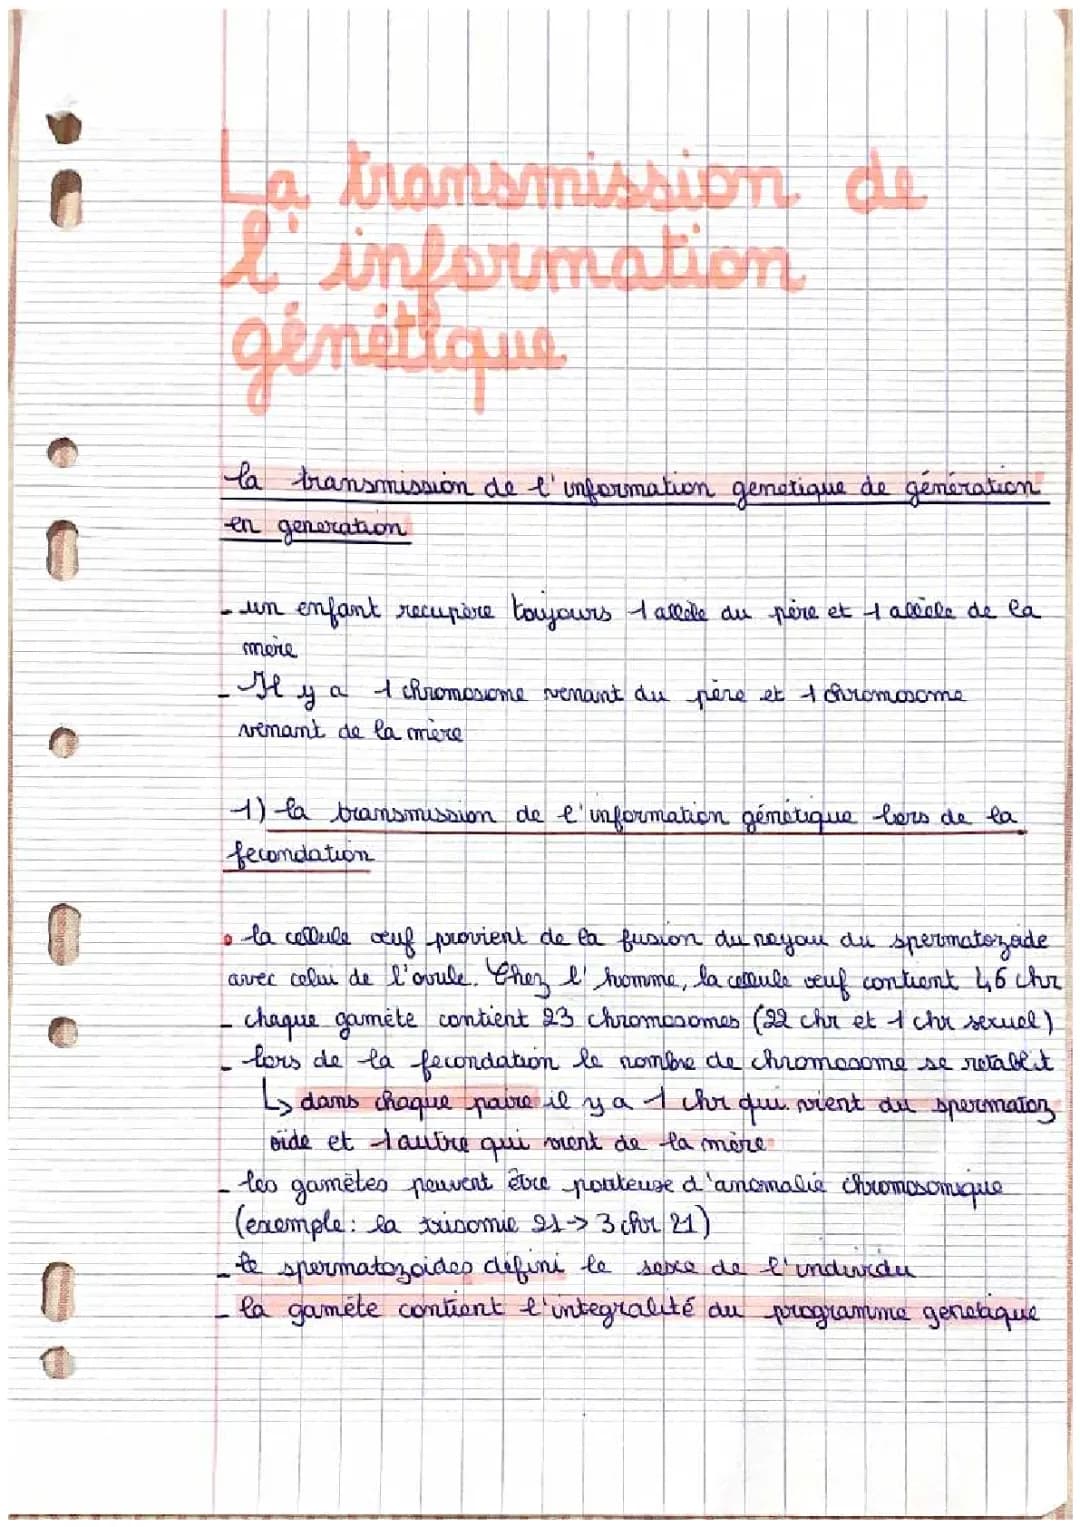 La transmission de
l'information
génétique
la transmission de l'information genetique de génération
en generation
- un enfant recupère toujours 1 allèle du père et 1 allèle de la
mère
- Il y a 1 chromosome venant du père et 1 chromosome
venant de la mère
1) la transmission de l'information génétique lors de la
fecondation
• la cellule œuf provient de la fusion du noyau du spermatozoide
avec celui de l'ovule. Chez l'homme, la cellule œuf contient 46 chr
- chaque gamète contient 23 chromosomes (22 chr et 1 chr sexuel)
- lors de la fecondation le nombre de chromosome se retablit
↳ dans chaque paire il y a 1 chr qui vient du spermatoz
oide et 1 autre qui vient de la mère
- les gamètes peuvent être porteuse d'anomalie chromosomique
(exemple: la trisomie 21 → 3 chr 21)
- le spermatozoides défini le sexe de l'individu
- la gamète contient l'integralité du programme genetique